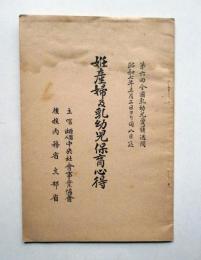 第六回全國乳幼児愛護週間
昭和七年五月二日ヨリ同八日迄
姙産婦及乳幼児保育心得
主唱 財團法人中央社會事業協會
後援 内務省 文部省